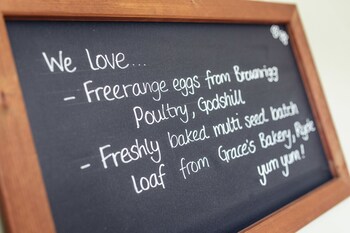 We Love...
- Freerange eggs from Brownrigg
Poultry, Godshill
- Freshly baked multi seed batch
loaf from Grace's Bakery, Ryde
yum yum!